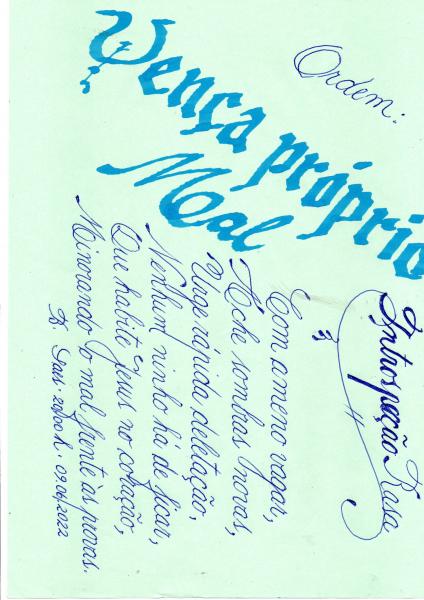 Ordem:
Vença próprio
Mal
Introspeção Rasa
Com ameno vagar,
Ache sombras
Urge rápida deletação,
Nenhum ninho há de ficar,
Que habite no coração,
Minorando o mal frente às provas.
20h00 09.06.2022